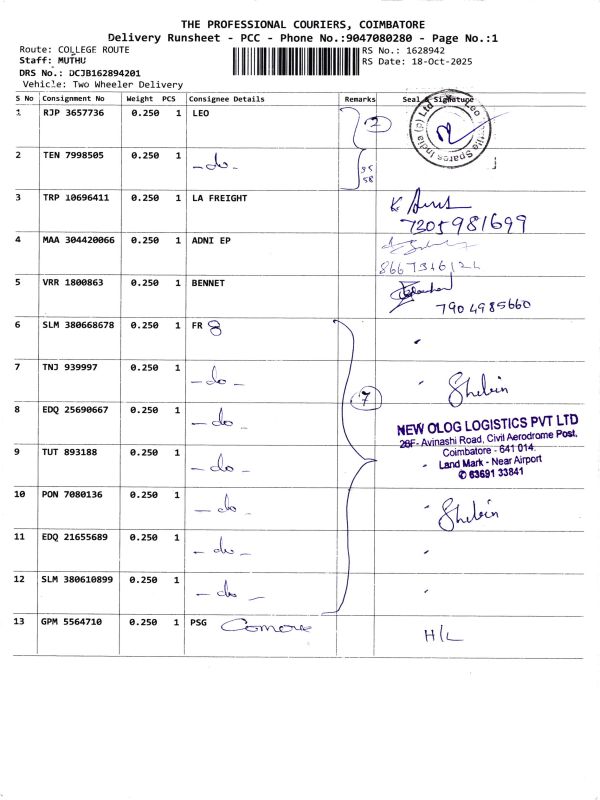 THE PROFESSIONAL COURIERS, COIMBATORE
Delivery Runsheet - PCC - Phone No.:9047080280 - Page No.:1
Route: COLLEGE ROUTE
RS No.: 1628942
Staff: MUTHU
RS Date: 18-Oct-2025
DRS No.: DCJB162894201
Vehicle: Two Wheeler Delivery
S No Consignment No Weight PCS Consignee Details Remarks Seal & Signature
1 RJP 3657736 0.250 1 LEO 2
2 TEN 7998505 0.250 1 - do -
95
58
3 TRP 10696411 0.250 1 LA FREIGHT
7205981699
4 MAA 304420066 0.250 1 ADNI EP
5 VRR 1800863 0.250 1 BENNET
7904985660
6 SLM 380668678 0.250 1 FR 8
7 TNJ 939997 0.250 1 - do -
Shebin
7
8 EDQ 25690667 0.250 1 - do -
NEW OLOG LOGISTICS PVT LTD
28F- Avinashi Road, Civil Aerodrome Post,
Coimbatore - 641 014.
Land Mark - Near Airport
✆ 63691 33841
9 TUT 893188 0.250 1 - do -
10 PON 7080136 0.250 1 - do -
Shebin
11 EDQ 21655689 0.250 1 - do -
12 SLM 380610899 0.250 1 - do -
13 GPM 5564710 0.250 1 PSG
H/L